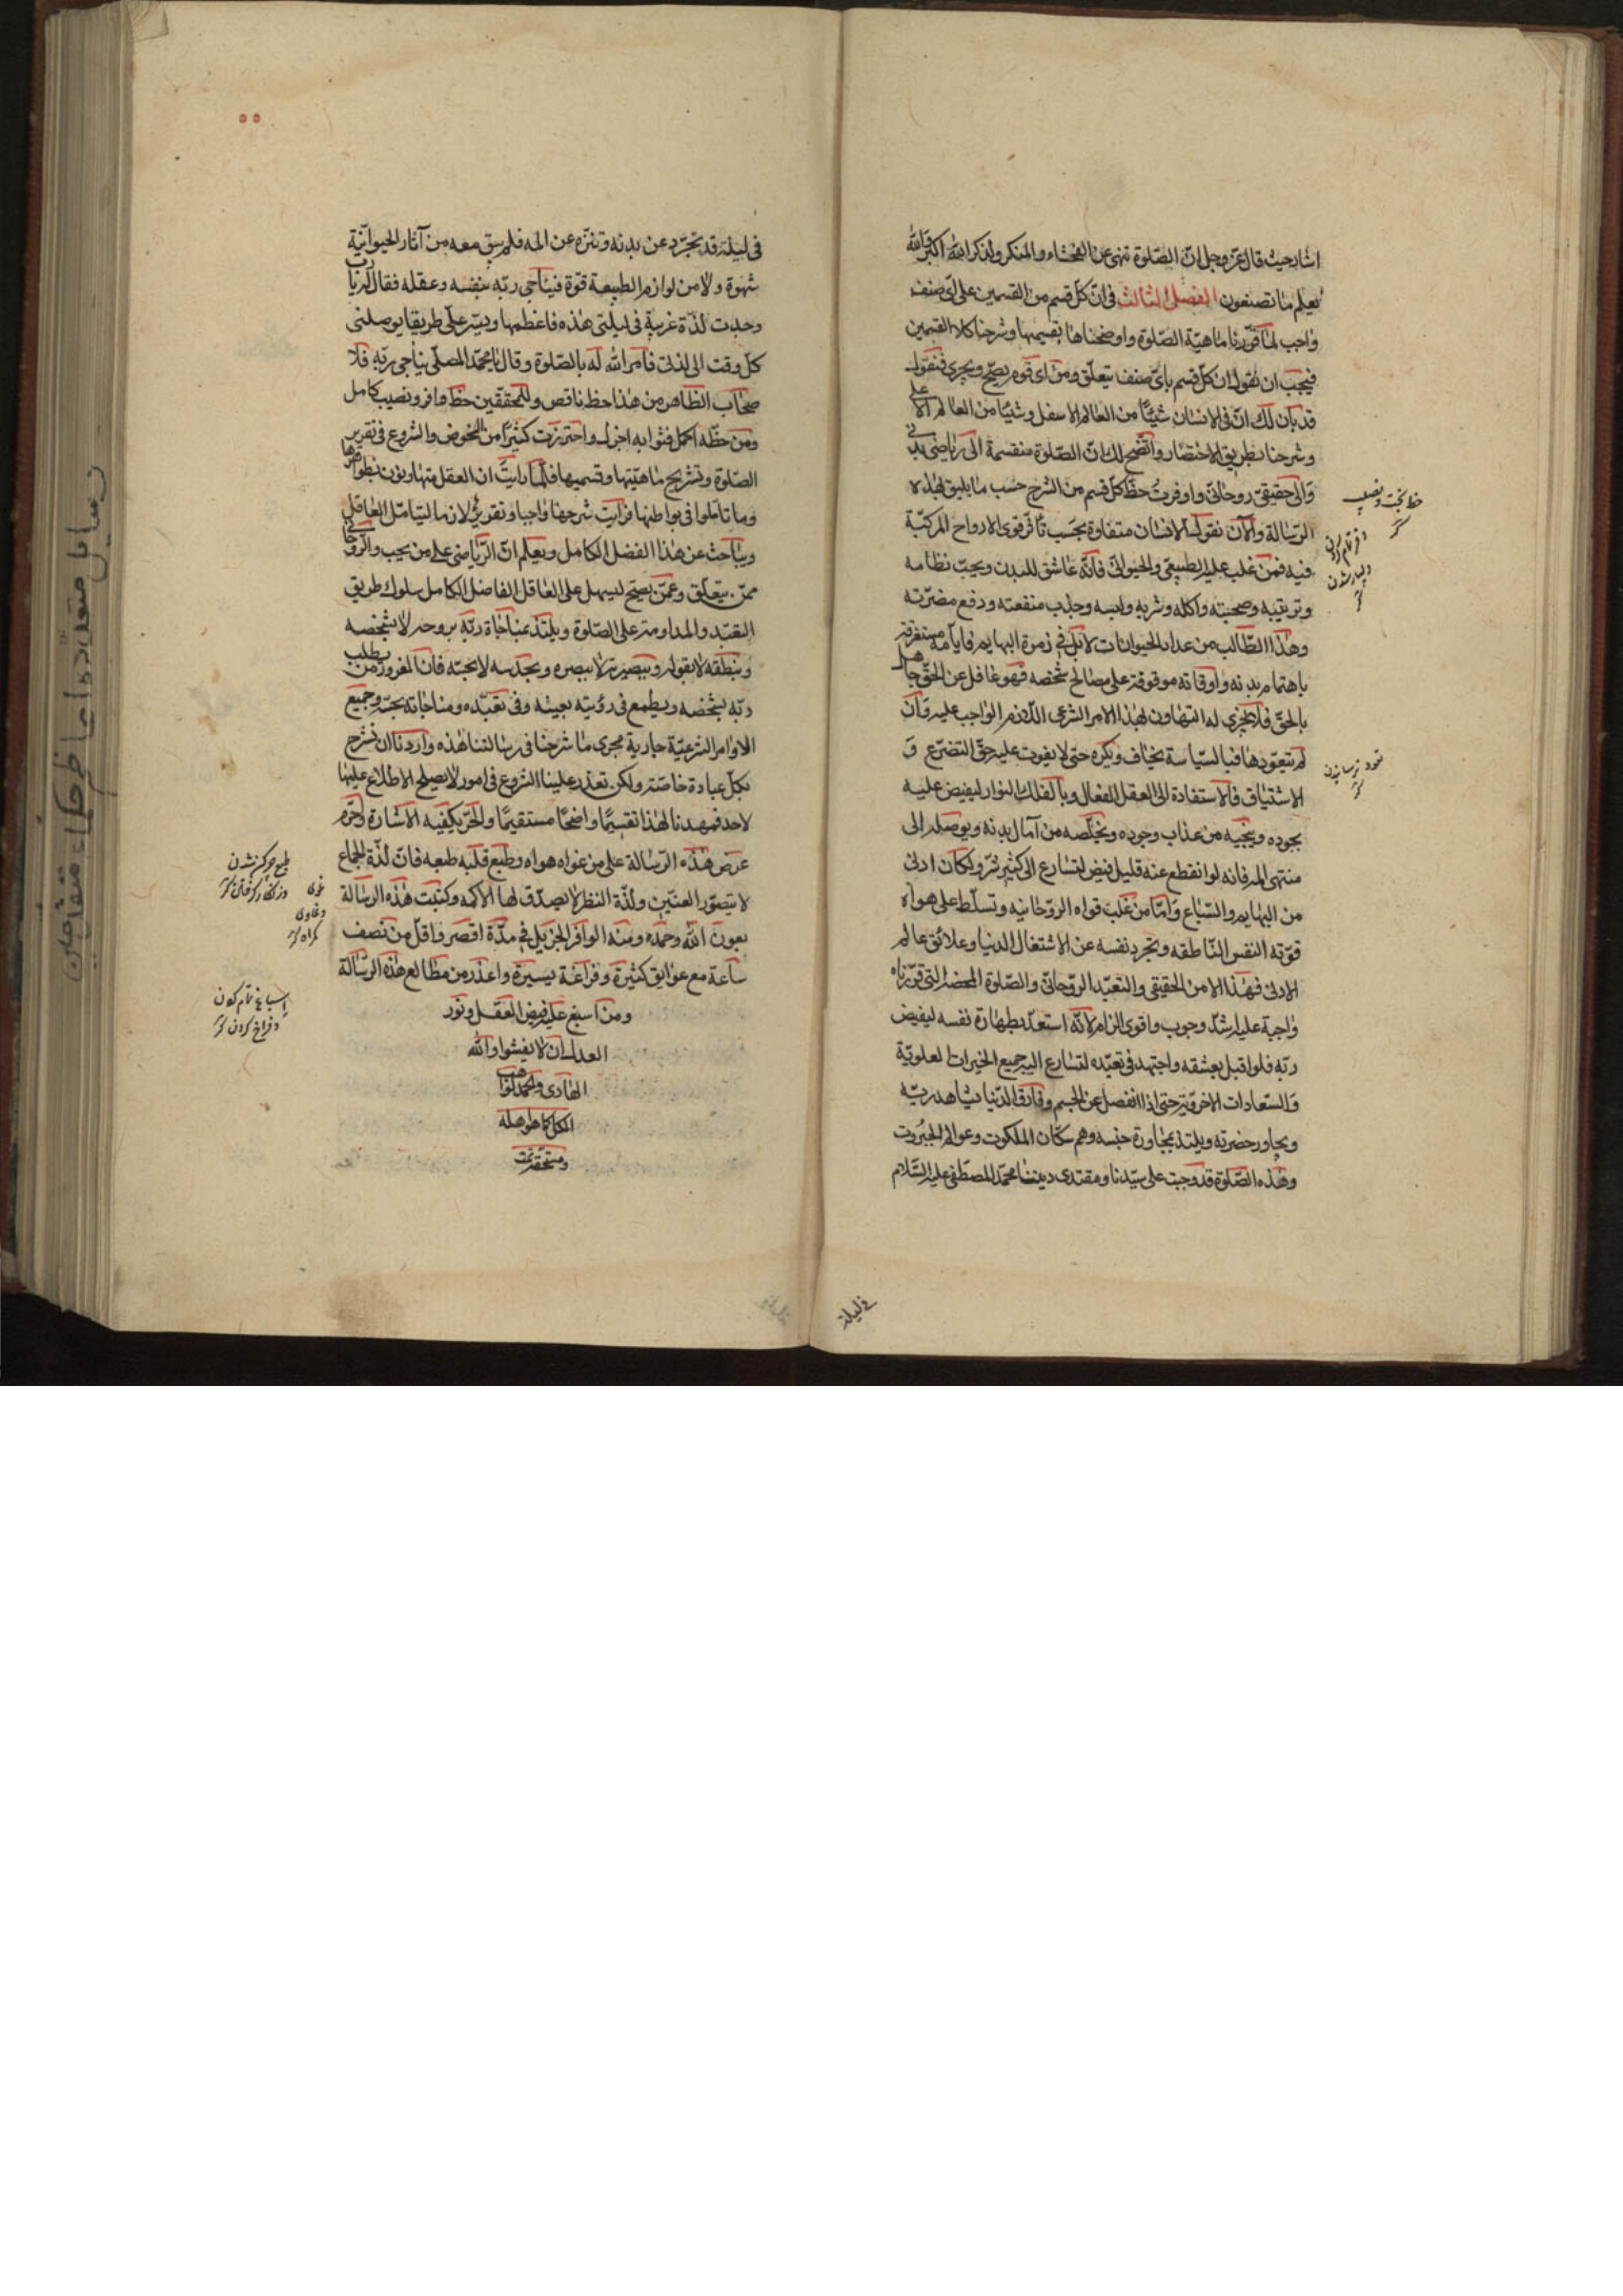 اشار حيث قال عزّ وجل انّ الصّلوة تنهى عن الفحشاء والمنكر ولذكر الله اكبر والله
يعلم ما تصنعون الفصل الثالث فى انّ كلّ قسم من القسمين على اىّ صنف
واجب لمّا قرّرنا ماهيّة الصّلوة واوضحناها بتقسيمها وشرحنا كلا القسمين
فيجب ان نقول انّ كلّ قسم باىّ صنف يتعلّق ومن اى قوم يصحّ ويجرى فنقول
قد بان لك انّ فى الانسان شيئًا من العالم الاسفل وشيئًا من العالم الاعلى
وشرحنا بطريق الاختصار واتّضح لك انّ الصّلوة منقسمة الى رياضى بدنى
والى حقيقىّ روحانىّ واوفرت حظّ كلّ قسم من الشرح حسب ما يليق لهذه
الرسالة والآن نقول الانسان متفاوة بحسب تأثّر قوى الارواح المركبّة
فيه فمن غلب عليه الطبيعى والحيوانى فانّه عاشق للبدن ويحبّ نظامه
وتربيته وصحبته واكله وشربه ولبسه وجذب منفعته ودفع مضرّته
وهذا الطّالب من عداد الحيوانات لا بل فى زمرة البهايم فايامه مستغرقة
باهتمام بدنه واوقاته موقوفة على مصالح شخصه فهو غافل عن الحقّ جاهل
بالحقّ فلا يجرى له التهاون لهذا الامر الشرعى اللّازم الواجب عليه وان
لم يتعوّدها فبالسّياسة يخاف ويكره حتى لا يفوت عليه حقّ التضرّع و
الاشتياق فالاستفادة الى العقل الفعال وبالفلك الدوار ليفيض عليه
بجوده وينجيه من عذاب وجوده ويخلّصه من آمال بدنه ويوصله الى
منتهى امله فانه لو انقطع عنه قليل فيض لتسارع الى كثير شرّ ولكان ادنى
من البهايم والسّباع وامّا من غلب قواه الروحانيه وتسلّط على هواه
قوّته النفس النّاطقه وتجرد نفسه عن الاشتغال الدنيا وعلائق عالم
الادنى فهذا الامر الحقيقى والتعبّد الرّوحانىّ والصّلوة المحضة التى قرّرناه
واجبة عليه اشدّ وجوب واقوى الزام لانّه استعدّ بطهارة نفسه ليفيض
ربّه فلو اقبل بعشقه واجتهد فى تعبّده لتسارع اليه جميع الخيرات العلويّة
والسّعادات الاخرويّة حتى اذا انفصل عن الجسم وفارق الدّنيا يشاهد ربّه
ويجاور حضرته ويلتذ بمجاورة جنسه وهم سكّان الملكوت وعوالم الجبروت
وهذه الصّلوة قد وجبت على سيّدنا ومقتدى ديننا محمّد المصطفى عليه السّلام
حظ بخت و نصيب
فى ليلة
٥٥
فى ليلة قد تجرّد عن بدنه وتنزّه عن امله فلم يبق معه من آثار الحيوانيّة
شهوة ولا من لوازم الطبيعة قوّة فيناجى ربّه بنفسه وعقله فقال يا ربّ
وجدت لذّة غريبة فى ليلتى هذه فاعطمها ويسّر علىّ طريقا يوصلنى
كلّ وقت الى لذتى فامر الله له بالصّلوة وقال يا محمّد المصلّى يناجى ربّه فلا
صحاب الظاهر من هذا حظ ناقص وللمحقّقين حظّ وافر ونصيب كامل
ومن حظّه اكمل فثوابه اجزل واحترزت كثيرًا من الخوض والشروع فى تقرير
الصّلوة وتشريح ماهيّتها وقسميها فلمّا رايت ان العقل متهاونون بظواهرها
وما تأمّلوا فى بواطنها فرايت شرحها واجبا وتقريرى لازما ليتامّل العاقل
ويباحث عن هذا الفضل الكامل ويعلم انّ الرّياضى على من يجب والرّوحانى
ممّن يتعلّق وعمّن يصح ليسهل على العاقل الفاضل الكامل سلوك طريق
التعبّد والمداومة على الصّلوة ويلتذ بمناجاة ربّه بروحه لا بشخصه
وبنطقه لا بقوله وببصيرته لا ببصره وبحدسه لا بحبّه فان المغرور من يطلب
ربّه بشخصه ويطمع فى رؤيته بعينه وفى تعبّده ومناجاته بحبّه وجميع
الاوامر الشرعيّة جارية مجرى ما شرحنا فى رسالتنا هذه واردنا ان نشرح
بكلّ عبادة خاصّته ولكن تعذر علينا الشروع فى امور لا يصلح الاطّلاع عليها
لاحد فمهدنا لهذا تقسيمًا واضحًا مستقيمًا والحرّ يكفيه الاشارة واحرّم
عرض هذه الرّسالة على من غواه هواه وطبع قلبه طبعه فانّ لذّة الجماع
لا يتصوّر العنيّن ولذّة النظر لا يصدّق لها الاكمه وكتبت هذه الرسالة
بعون الله وحمده ومنه الوافر الجزيل فى مدّة اقصر واقلّ من نصف
ساعة مع عوايق كثيرة وفراغة يسيرة واعذر من مطالع هذه الرسالة
ومن اسبغ عليه فيض العقل ونور
العدل ان لا يفشوا والله
الهادى والحمد لواهب
الكل كما هو اهله
ومستحقه تمت
اسباغ تمام كردن
و فراخ كردن